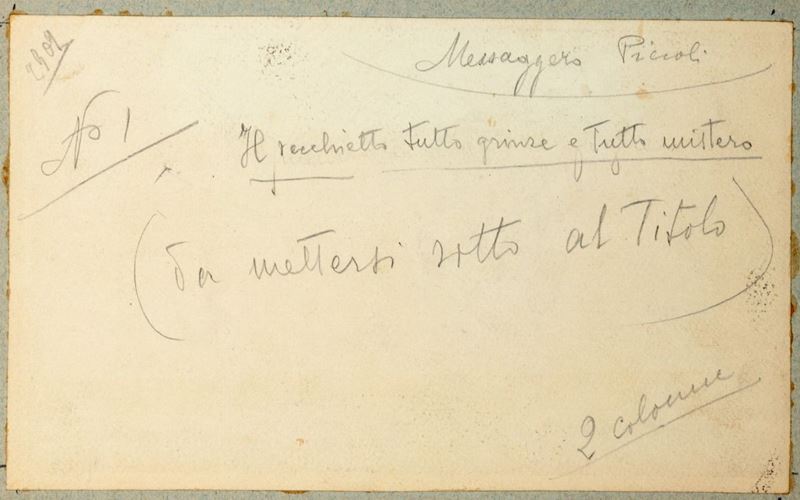 Messaggero Piccoli
No 1
Il vecchietto tutto grinze e tutto mistero
(da mettersi sotto al Titolo)
2 colonne